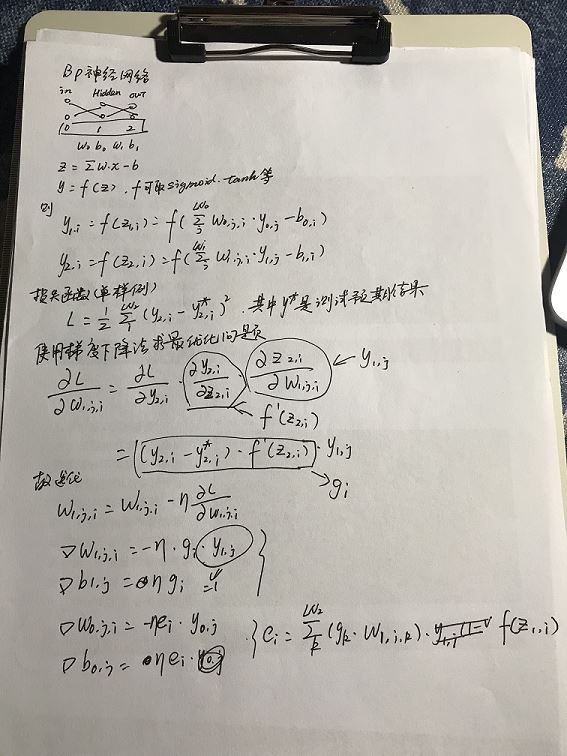 BP神经网络
in Hidden out
0 1 2
w₀ b₀ w₁ b₁
z = Σw·x - b
y = f(z) , f可取sigmoid、tanh等
则 y₁,ᵢ = f(z₁,ᵢ) = f( Σⱼ^{w₀} w₀,ⱼ,ᵢ · y₀,ⱼ - b₀,ᵢ )
y₂,ᵢ = f(z₂,ᵢ) = f( Σⱼ^{w₁} w₁,ⱼ,ᵢ · y₁,ⱼ - b₁,ᵢ )
损失函数(单样例)
L = 1/2 Σᵢ^{w₂} (y₂,ᵢ - y*₂,ᵢ)² , 其中y*是测试预期结果
使用梯度下降法求最优化问题
∂L/∂w₁,ⱼ,ᵢ = ∂L/∂y₂,ᵢ · ∂y₂,ᵢ/∂z₂,ᵢ · ∂z₂,ᵢ/∂w₁,ⱼ,ᵢ ← y₁,ⱼ
f'(z₂,ᵢ)
= (y₂,ᵢ - y*₂,ᵢ) · f'(z₂,ᵢ) · y₁,ⱼ
→ gᵢ
w₁,ⱼ,ᵢ = w₁,ⱼ,ᵢ - η ∂L/∂w₁,ⱼ,ᵢ
▽w₁,ⱼ,ᵢ = -η · gᵢ · y₁,ⱼ
▽b₁,ⱼ = ηgᵢ
▽w₀,ⱼ,ᵢ = -ηeᵢ · y₀,ⱼ } eᵢ = Σₖ^{w₂} (gₖ · w₁,ⱼ,ₖ) · f(z₁,ᵢ)
▽b₀,ⱼ = ηeᵢ